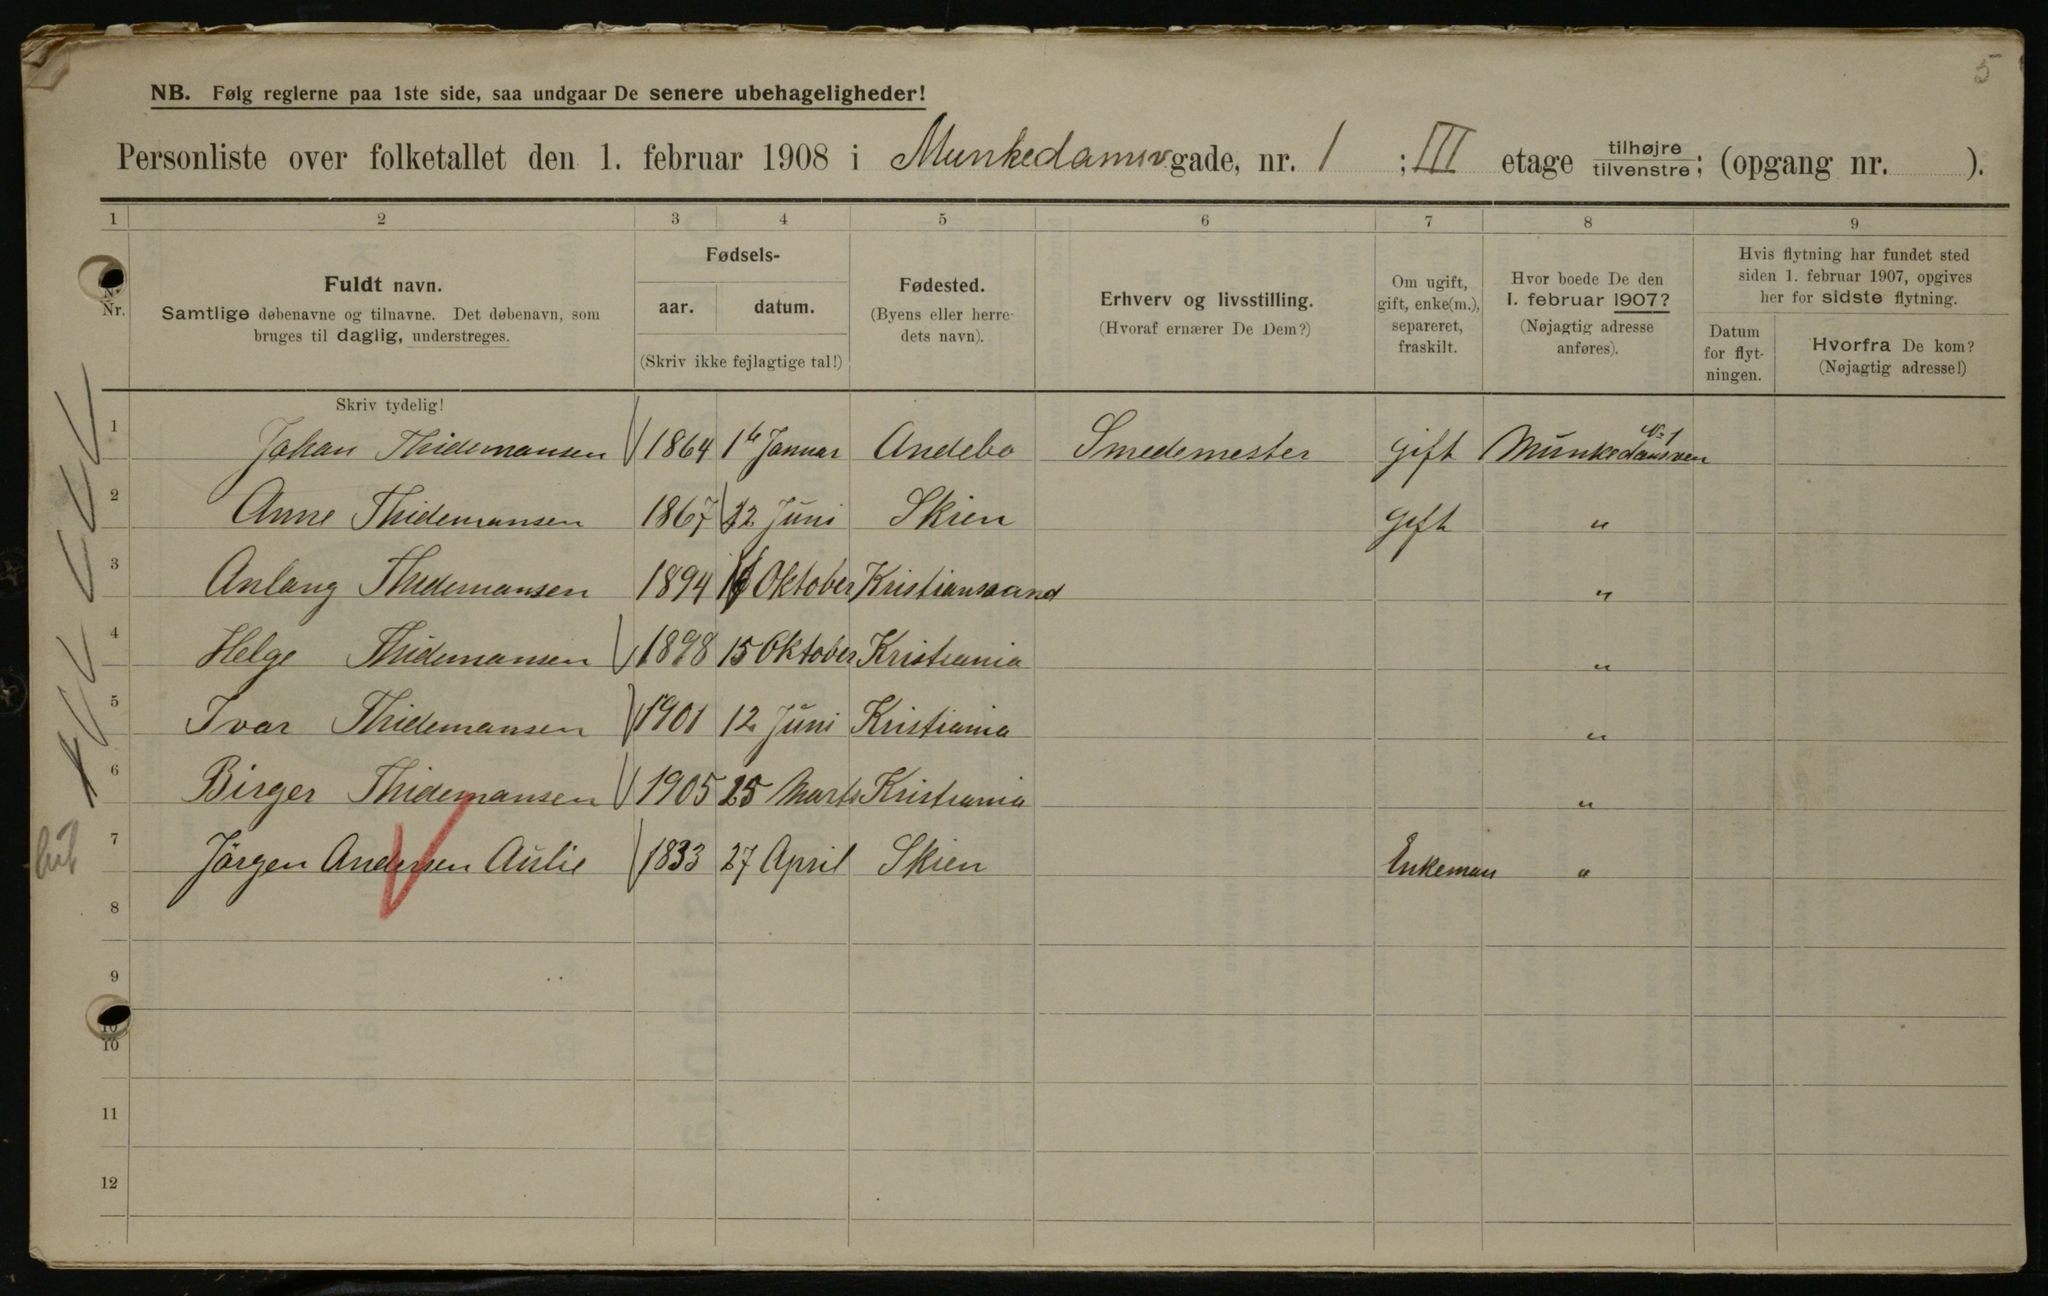 5
NB. Følg reglerne paa 1ste side, saa undgaar De senere ubehageligheder!
Personliste over folketallet den 1. februar 1908 i Munkedamsv gade, nr. 1 ; III etage tilhøjre tilvenstre; (opgang nr. ).
1 2 3 4 5 6 7 8 9
Nr.
Fuldt navn.
Samtlige døbenavne og tilnavne. Det døbenavn, som
bruges til daglig, understreges.
Fødsels-
aar. datum.
(Skriv ikke fejlagtige tal!)
Fødested.
(Byens eller herre-
dets navn).
Erhverv og livsstilling.
(Hvoraf ernærer De Dem?)
Om ugift,
gift, enke(m.),
separeret,
fraskilt.
Hvor boede De den
1. februar 1907?
(Nøjagtig adresse
anføres).
Hvis flytning har fundet sted
siden 1. februar 1907, opgives
her for sidste flytning.
Datum
for flyt-
ningen.
Hvorfra De kom?
(Nøjagtig adresse!)
Skriv tydelig!
1 Johan Thidemansen 1864 1te Januar Andebo Smedemester gift Munkedamsven No 1
2 Anne Thidemansen 1867 Juni Skien gift "
3 Aslaug Thidemansen 1894 Oktober Kristianssand "
4 Helge Thidemansen 1898 15 Oktober Kristiania "
5 Ivar Thidemansen 1901 12 Juni Kristiania "
6 Birger Thidemansen 1905 25 Marts Kristiania "
7 Jörgen Andersen Aulie 1833 27 April Skien Enkeman "
8
9
10
10
11
12